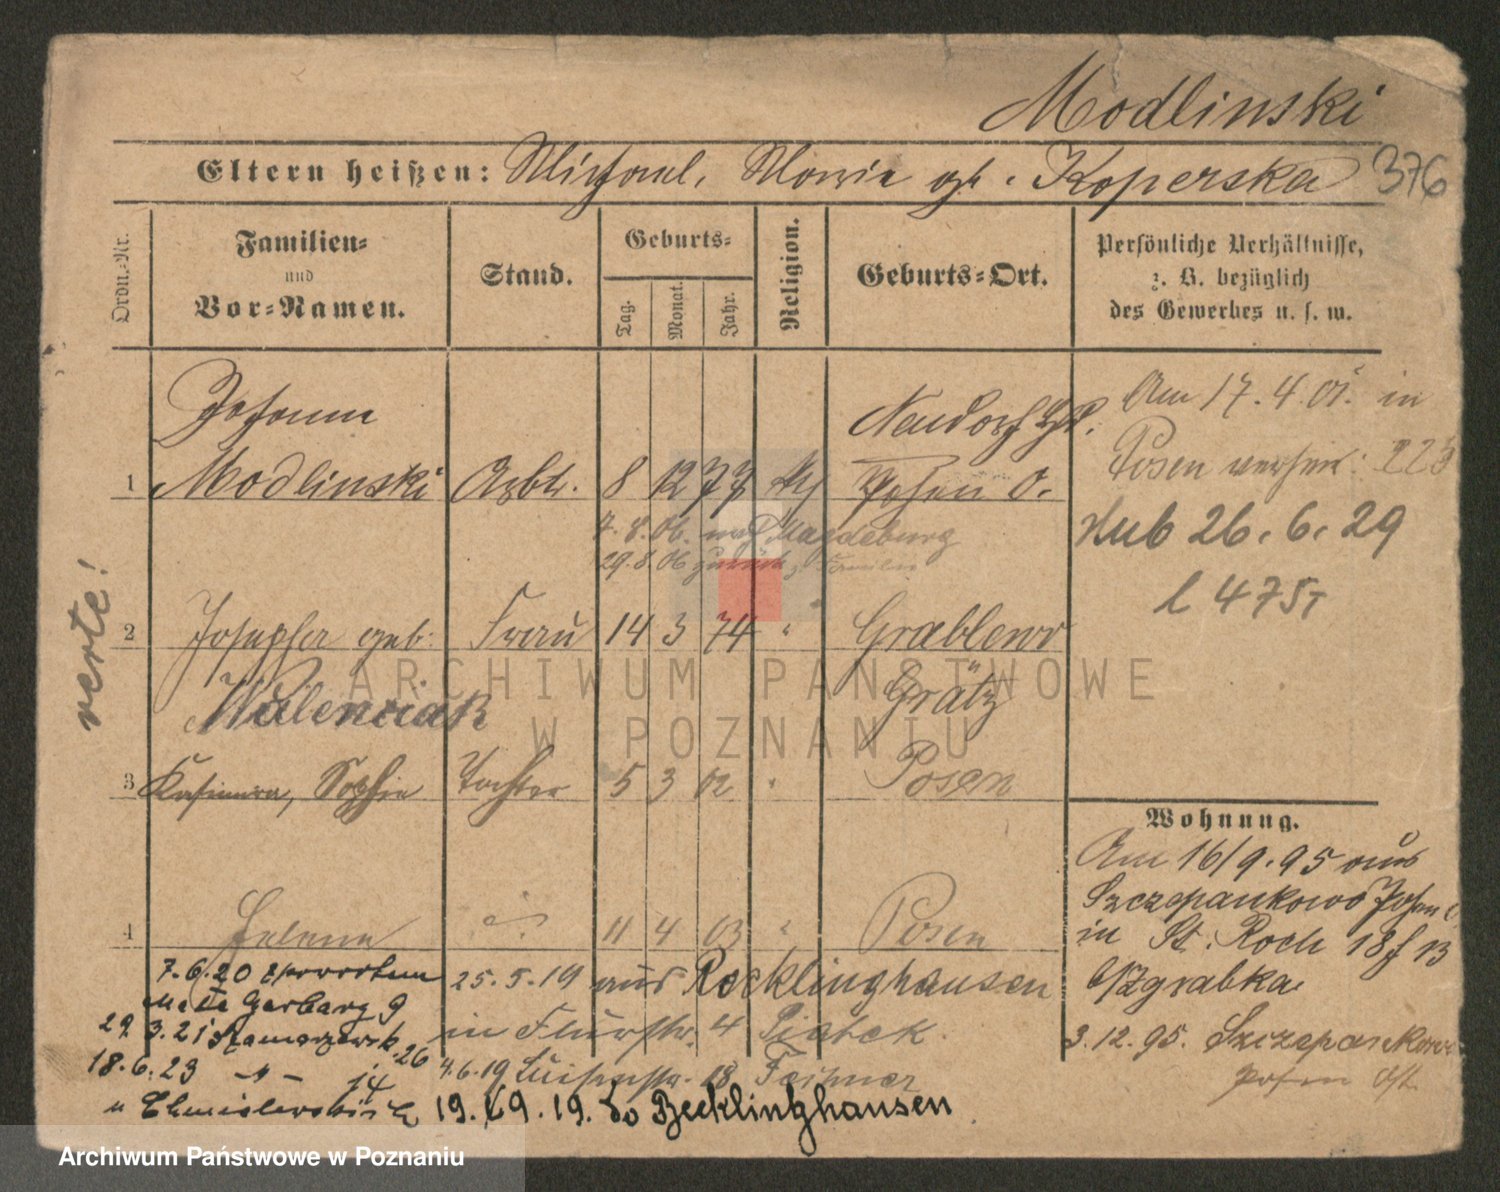 Modlinski
Eltern heißen: Michael, Maria geb. Koperska 376
Ordn.-Nr.
Familien- und Vor-Namen.
Stand.
Geburts-
Tag. Monat. Jahr.
Religion.
Geburts-Ort.
Persönliche Verhältnisse,
z. B. bezüglich
des Gewerbes u. s. w.
Johann Neudorf
1 Modlinski Arbtr. 8 12 77 kth Posen O.
7. 8. 06. nach Magdeburg
29. 8. 06 zurück
Am 17. 4. 01. in
Posen 223
26. 6. 29
l 475
2 Josepha geb. Frau 14 3 74 " Grablewo
Walenciak Grätz
3 Kasimira, Sophie Tochter 5 3 02 " Posen
4 Helene 11 4 03 " Posen
verte!
Wohnung.
Am 16/9. 95 aus
Szczepankowo Posen O.
in St. Roch 18 f 13
Czgrabka
3. 12. 95. Szczepankowo
Posen Ost
7. 6. 20 25. 5. 19 aus Recklinghausen
Garbary 9
29. 3. 21 in Flurstr. 4 Piatek
18. 6. 23 -"- 14 4. 6. 19 Luisenstr. 18
19. 9. 19. do Recklinghausen
ARCHIWUM PAŃSTWOWE
W POZNANIU
Archiwum Państwowe w Poznaniu